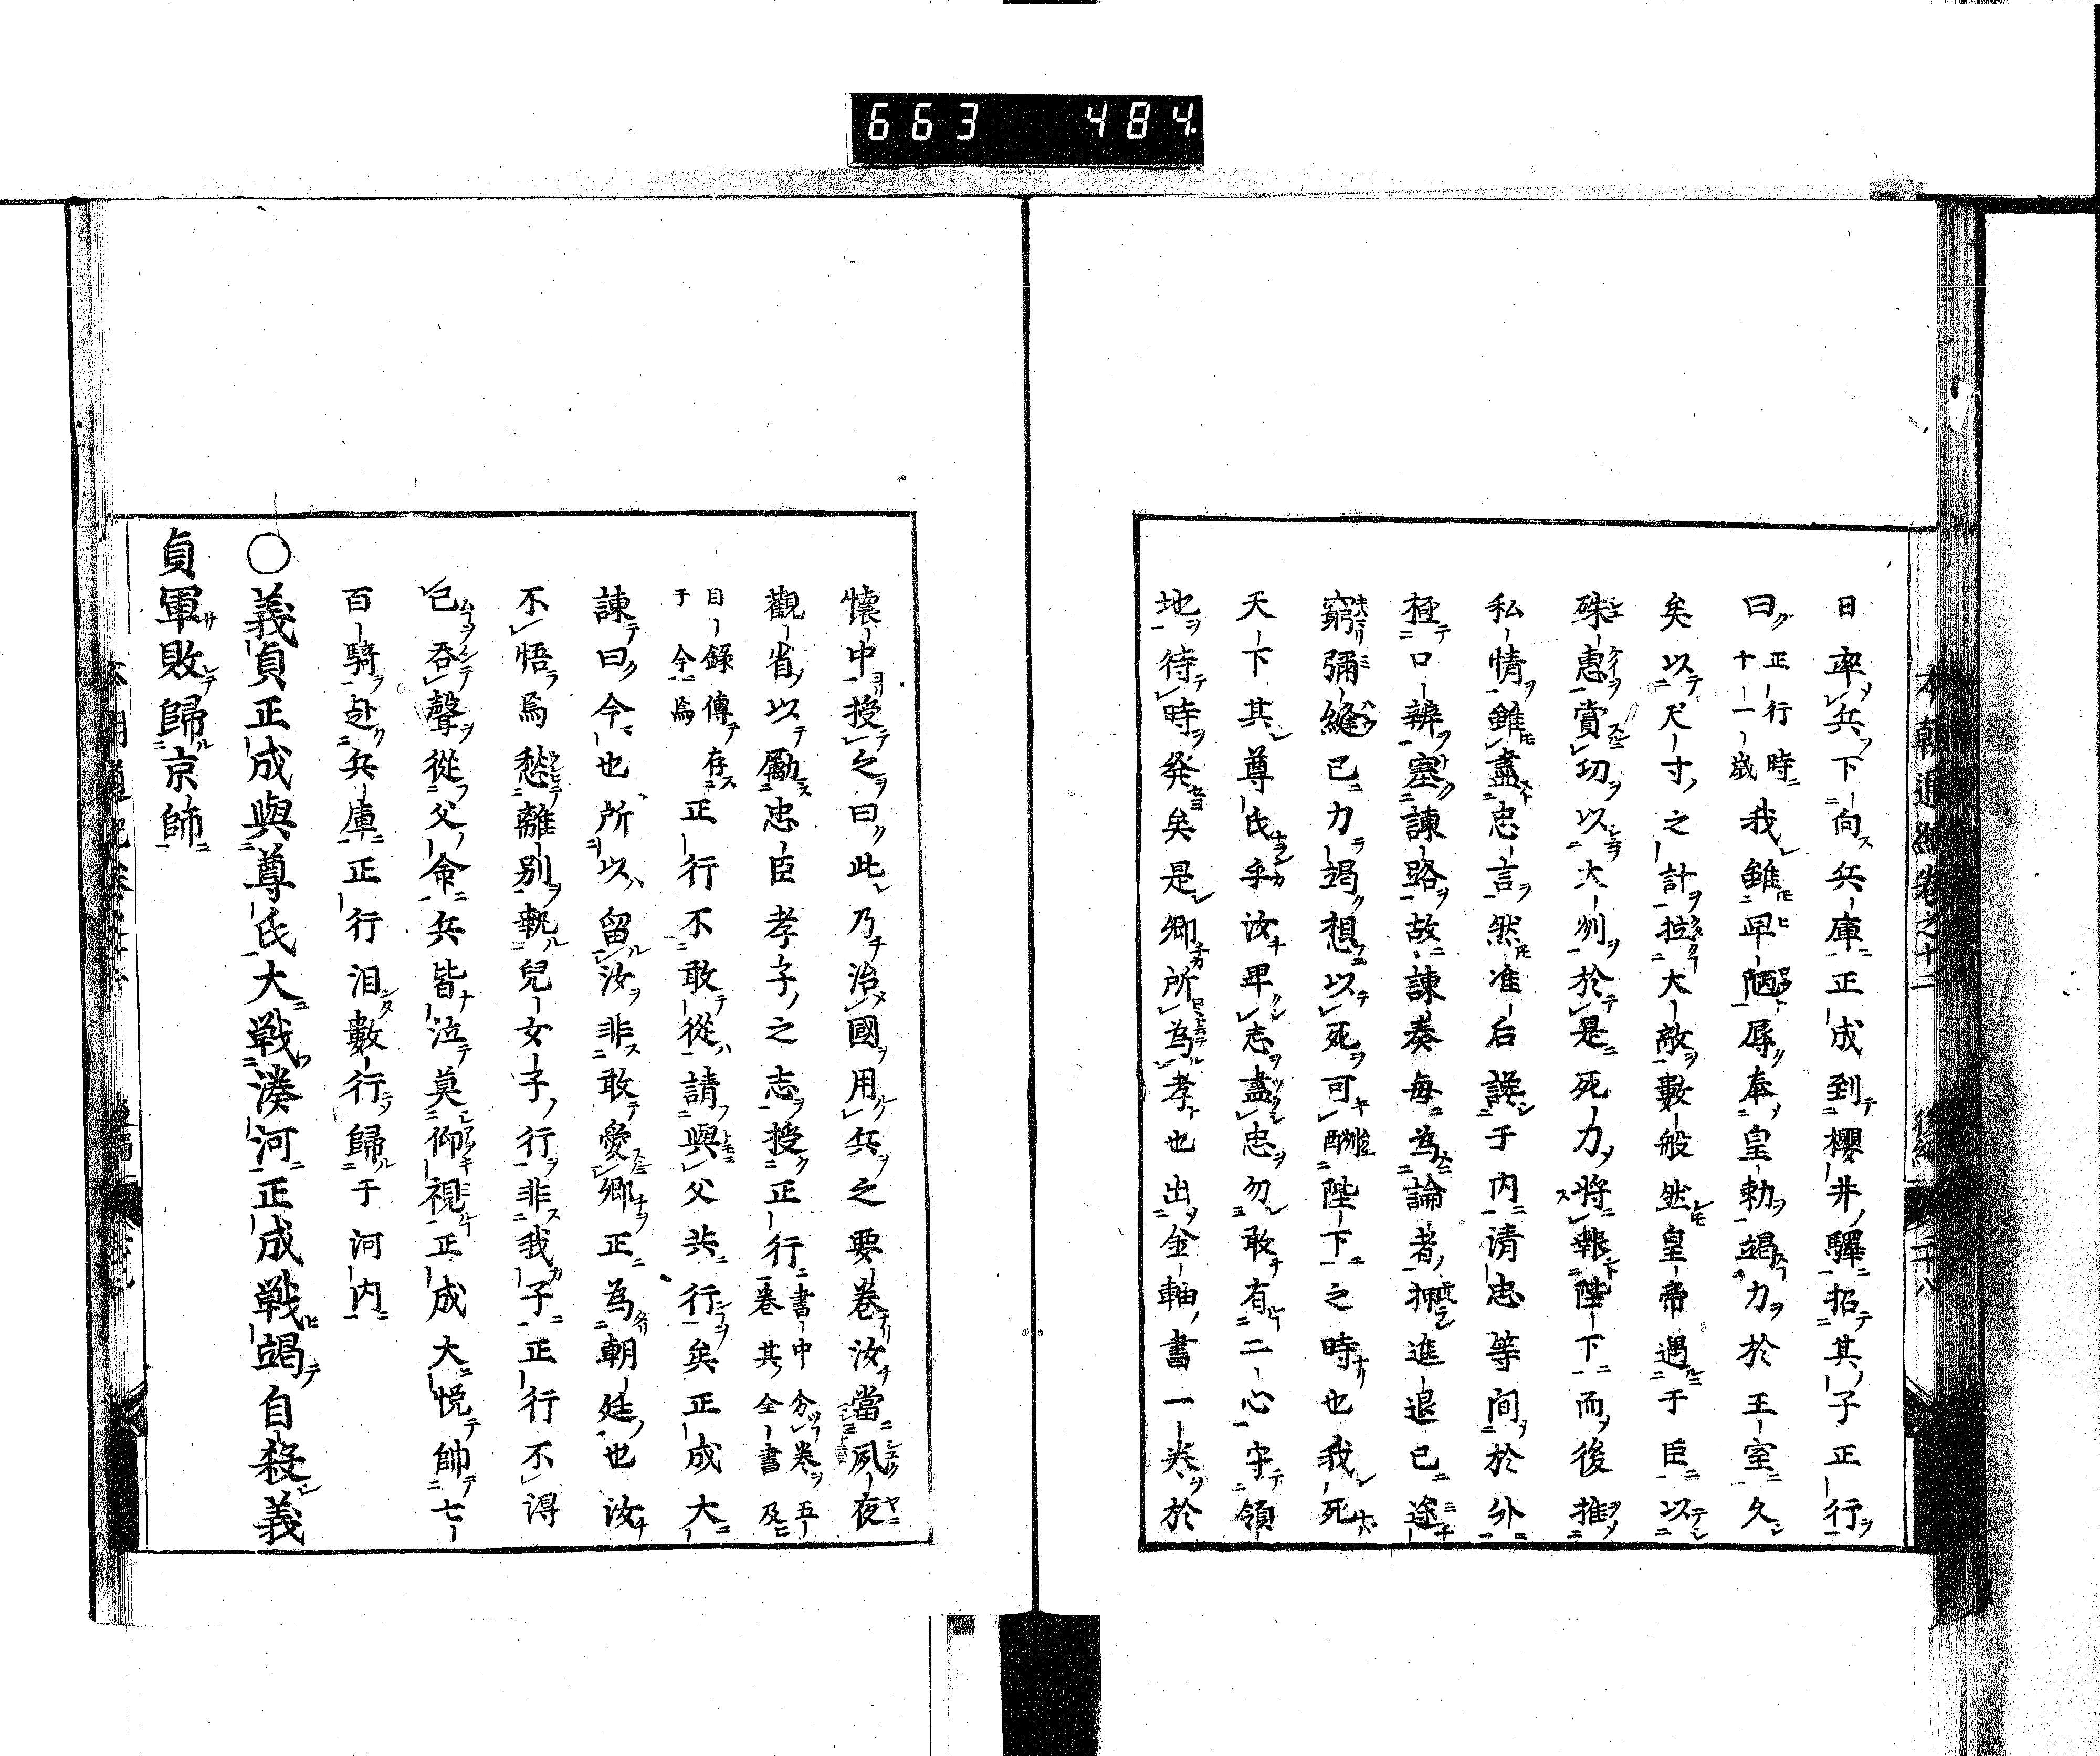 663 484
本朝通紀卷之十二 後編 二十八
日率兵下向兵庫正成到櫻井驛招其子正行
曰正行時十一歲我雖卑陋辱奉皇勅竭力於王室久
矣以尺寸之計拉大敵數般然皇帝遇于臣以
殊惠賞功以大州於是死力將報陛下而後推
私情雖盡忠言然准后謀于内清忠等間於外
極口辨塞諫路故諫奏每為論者抑進退已途
窮彌縫已力竭想以死可酬陛下之時也我死
天下其尊氏乎汝畢志盡忠勿敢有二心守領
地待時発矣是卿所為孝也出金軸書一卷於
懷中授之曰此乃治國用兵之要卷汝當夙夜
觀省以勵忠臣孝子之志授正行書中分卷五一卷其全書及
目錄傳存于今焉正行不敢從請與父共行矣正成大
諫曰今也所以留汝非敢愛卿正為朝廷也汝
不悟焉愁離別執兒女子行非我子正行不得
已吞聲從父命兵皆泣莫仰視正成大悦帥七
百騎赴兵庫正行泪數行歸于河内
○義貞正成與尊氏大戰湊河正成戰竭自殺義
貞軍敗歸京師